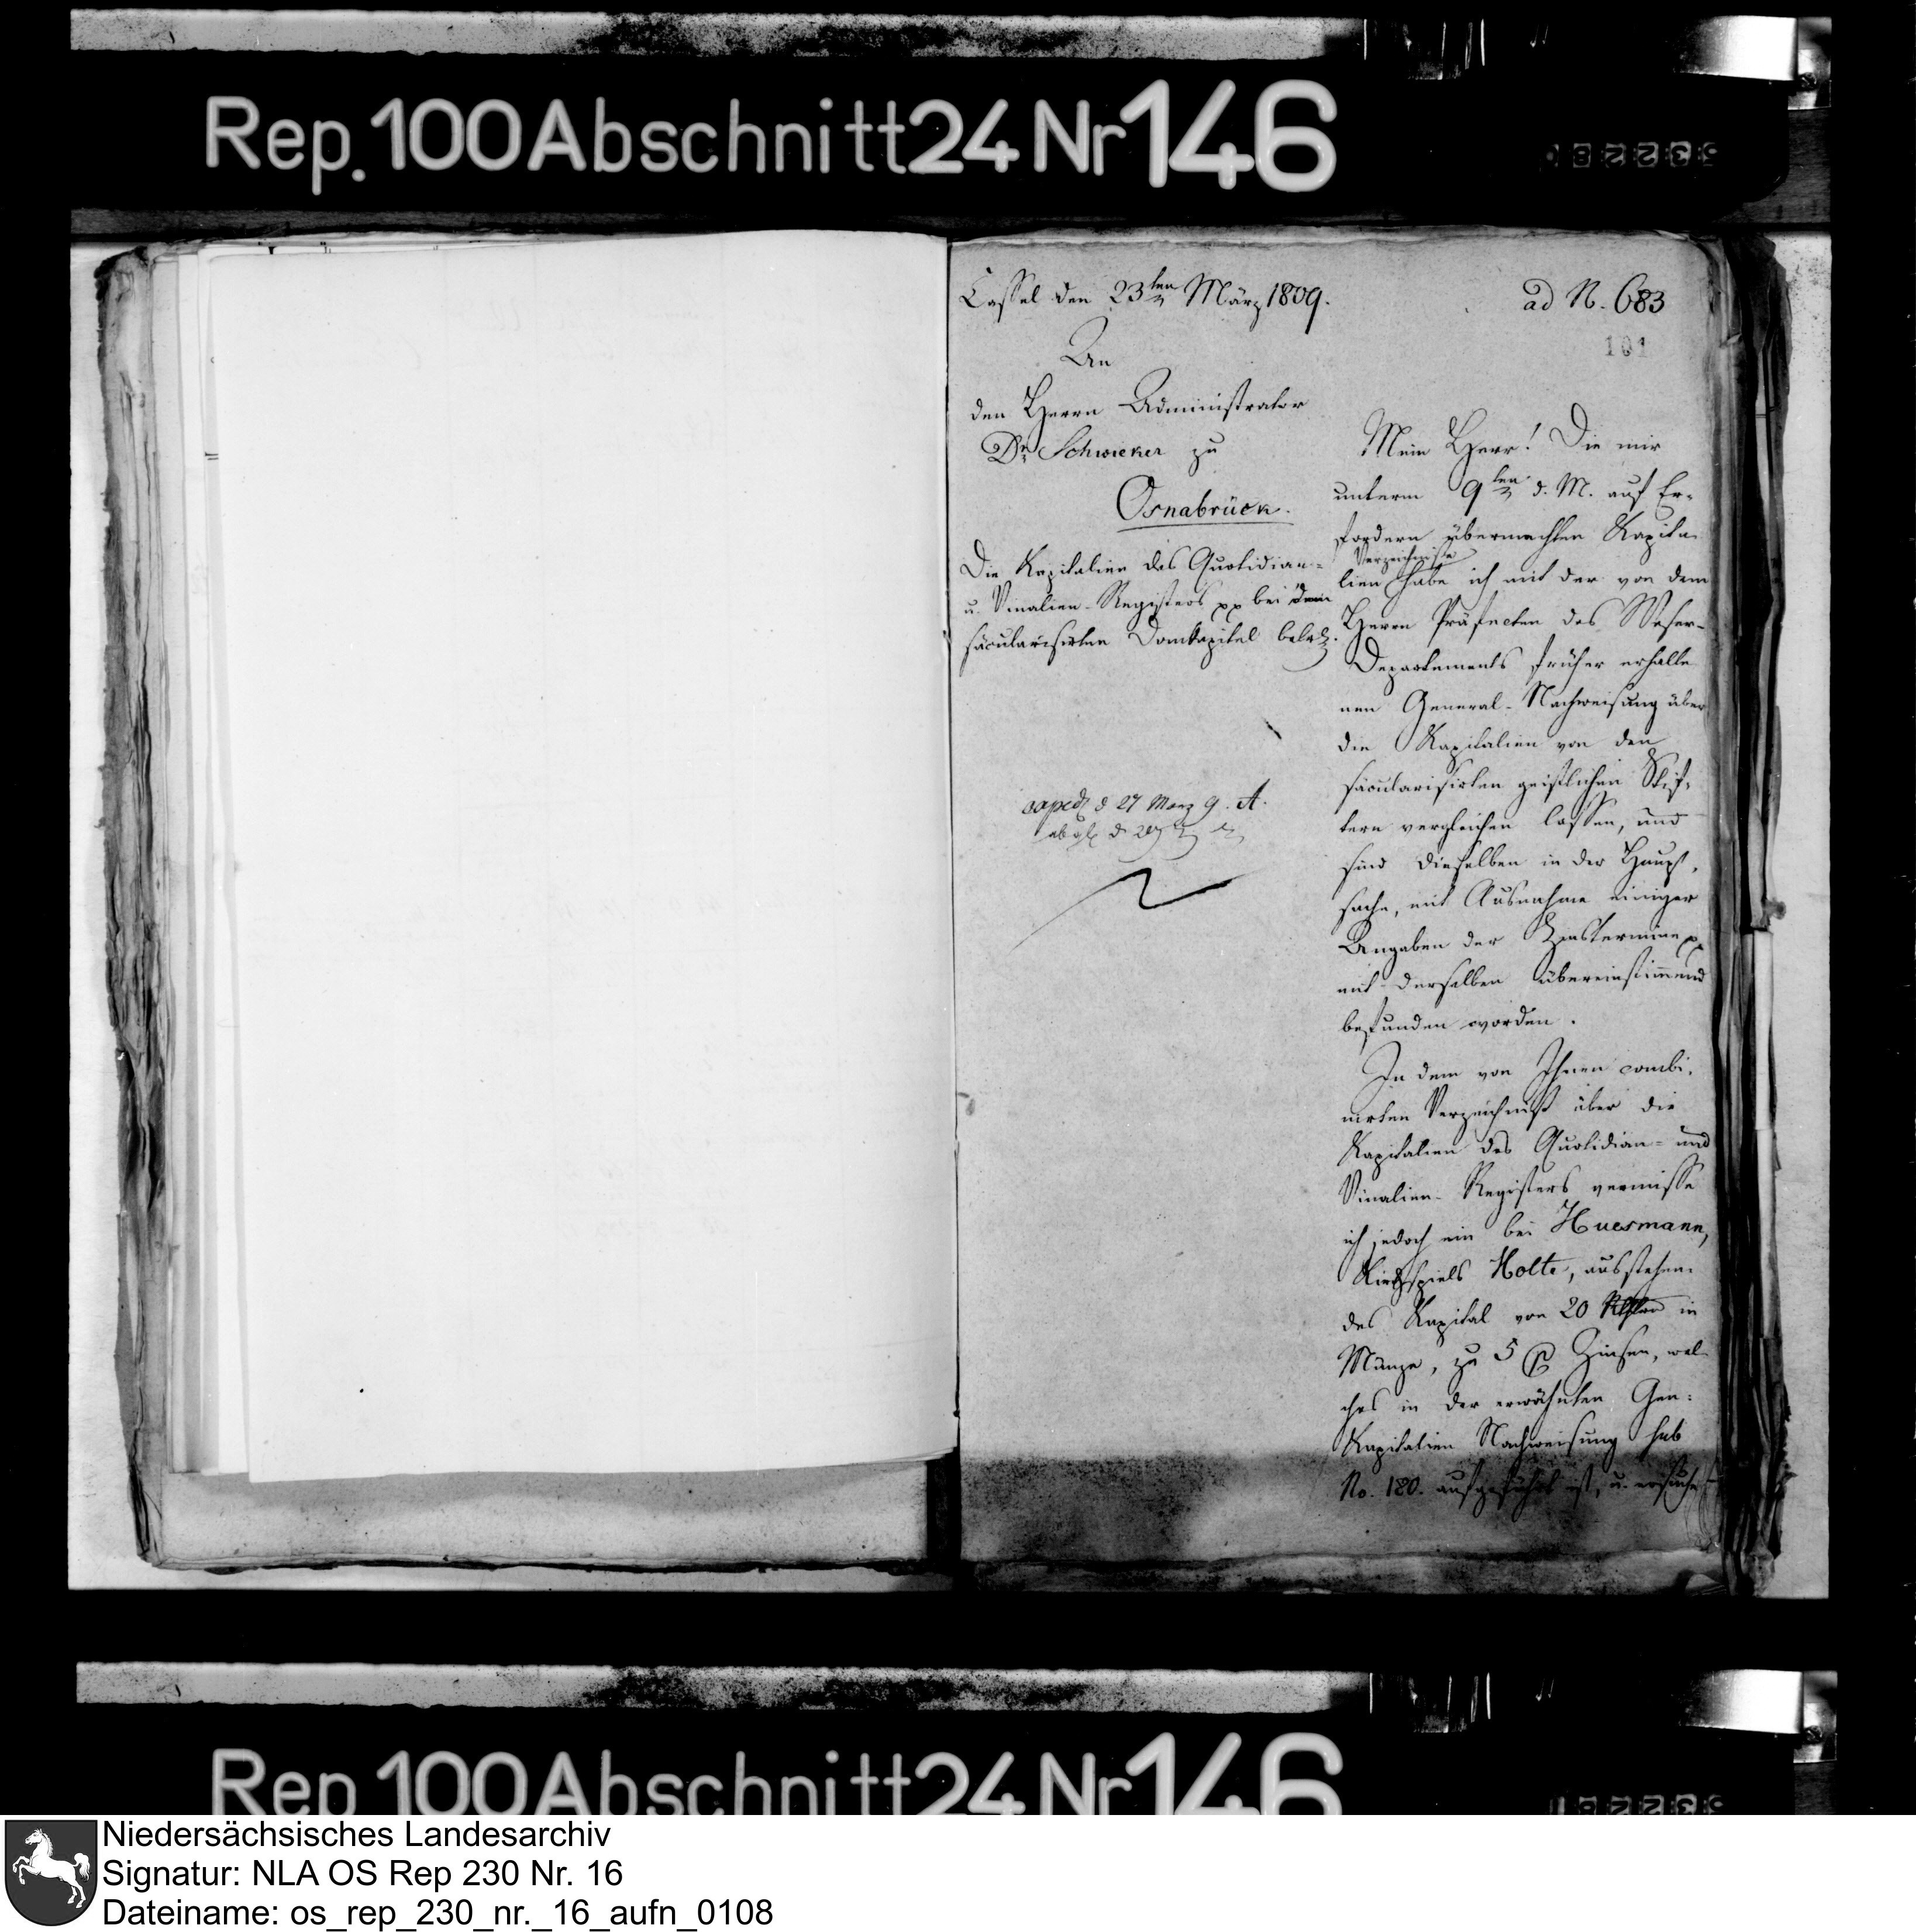 Rep. 100 Abschnitt 24 Nr 146
Cassel den 23ten März 1809.
ad N. 683
101
An
den Herrn Administrator
Dr. Schwicker zu
Osnabrück.
Die Kapitalien des Quotidian-
u. Vinalien-Registers pp bei dem
säcularisirten Domkapitel betr.
exped d 27 März 9. A.
Mein Herr! Die mir
unterm 9ten d. M. auf Er-
fordern übermachten Kapita-
Verzeichniße
lien habe ich mit der von dem
Herrn Präfecten des Weser-
Departements früher erhalte
nen General-Nachweisung über
die Kapitalien von den
säcularisirten geistlichen Stif-
tern vergleichen lassen, und
sind dieselben in der Haupt-
sache, mit Ausnahme einiger
Angaben der Zinstermine pp
mit derselben übereinstimmend
befunden worden.
In dem von Ihnen combi-
nirten Verzeichniß über die
Kapitalien des Quotidian- und
Vinalien-Registers vermisse
ich jedoch ein bei Huesmann,
Kirchspiels Holte, ausstehen-
des Kapital von 20 in
Münze, zu 5 Zinsen, wel
ches in der erwähnten Gen:
Kapitalien Nachweisung sub
No. 180. aufgeführt ist, u. ersuche
Rep 100 Abschnitt 24 Nr 146
Niedersächsisches Landesarchiv
Signatur: NLA OS Rep 230 Nr. 16
Dateiname: os_rep_230_nr._16_aufn_0108